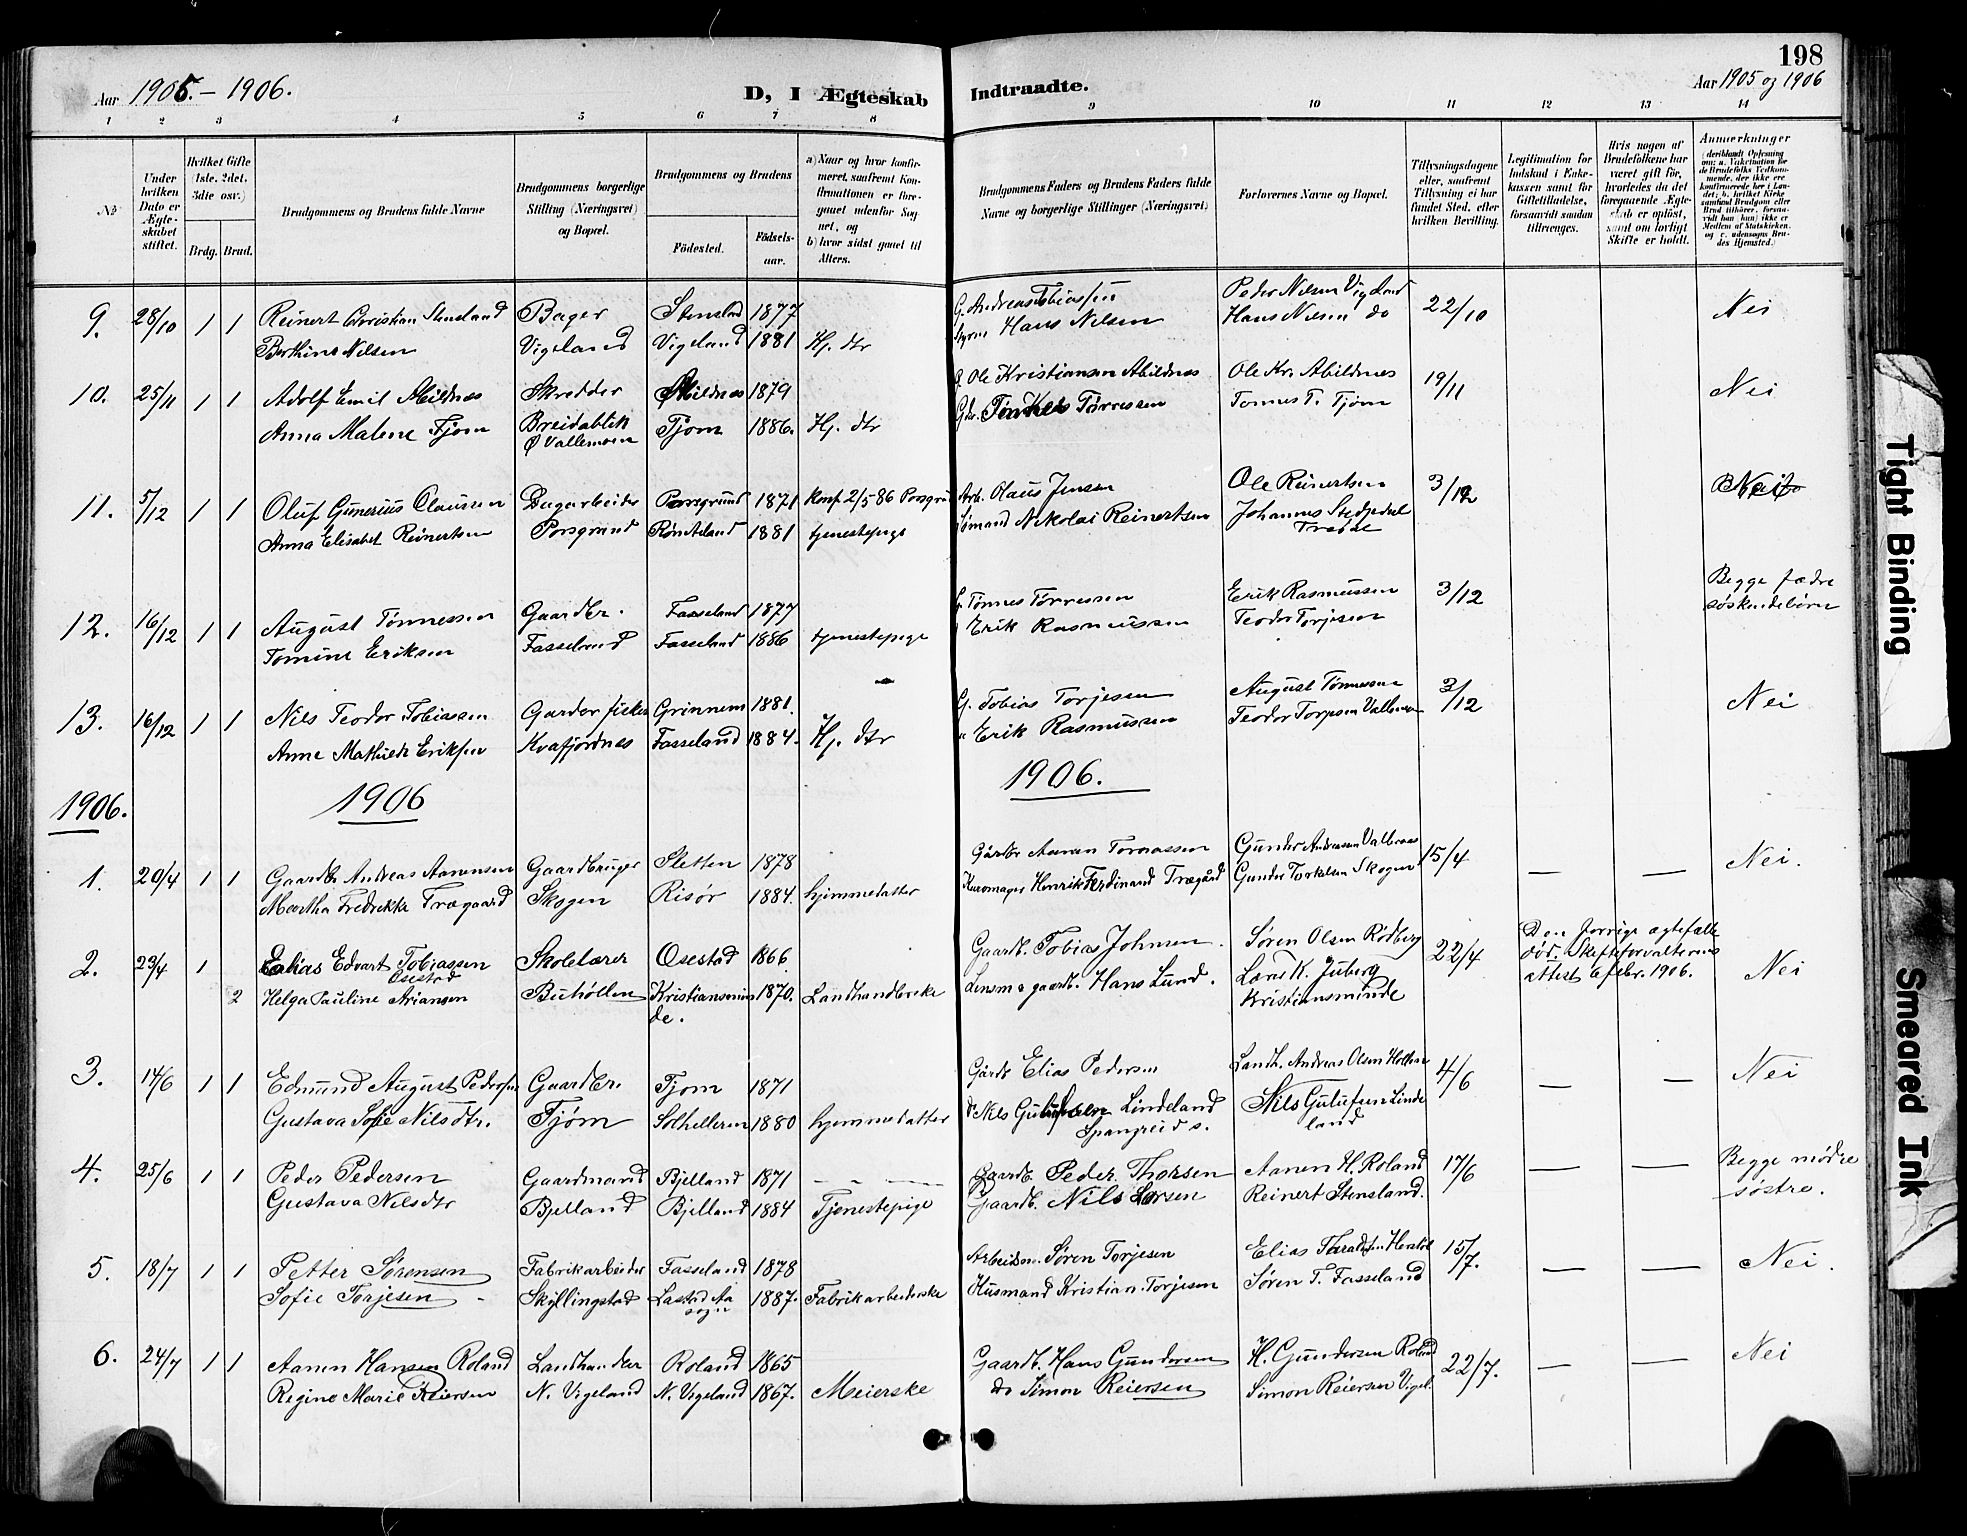 198
Aar 1905. – 1906.
D, I Ægteskab
Indtraadte.
Aar 1905 og 1906
1 2 3 4 5 6 7 8
9 10 11 12 13 14
No
Under hvilken Dato er Ægteskabet stiftet.
Hvilket Gifte (1ste. 2det. 3die osv.)
Brdg. Brud.
Brudgommens og Brudens fulde Navne
Brudgommens borgerlige Stilling (Næringsvei) og Bopæl.
Brudgommens og Brudens
Fødested.
Fødselsaar.
a) Naar og hvor konfirmeret, saafremt Konfirmationen er foregaaet udenfor Sognet, og
b) hvor sidst gaaet til Alters.
Brudgommens Faders og Brudens Faders fulde Navne og borgerlige Stillinger (Næringsvei)
Forlovernes Navne og Bopæl.
Tillysningsdagene eller, saafremt Tillysning ei har fundet Sted, efter hvilken Bevilling.
Legitimation for Indskud i Enkekassen samt for Giftetilladelse, forsaavidt saadan tiltrænges.
Hvis nogen af Brudefolkene har været gift før, hvorledes da det foregaaende Ægteskab er opløst, samt om lovligt Skifte er holdt.
Anmærkninger
9. 28/10 1 1 Reinert Christian Stensland Bager Stensland 1877 G. Andreas Tobiassen Peder Nilsen Vigeland 22/10 Nei
Berthine Nilsen Vigeland Vigeland 1881 Hj. dtr Hans Nilsen Hans Nilsen do
10. 25/11 1 1 Adolf Emil Abildnes Skredder Abildnes 1879 Ole Kristiansen Abildnes Ole Kr. Abildnes 19/11 Nei
Anna Malene Tjom Breidablik Tjom 1886. Hj. dtr Tørressen Tønnes T. Tjøm
Ø Vallemoen
11. 5/12 1 1 Oluf Gunerius Claussen Dagarbeider Porsgrund 1871 Konf 2/5 86 Porsgrund Arb. Olaus Jensen Ole Reinertsen 3/12
Anna Elisabet Reinertsen Porsgrund 1881 tjenestepige Sømand Nikolai Reinertsen Johannes
12. 16/12 1 1 August Tønnessen Gaardbr. Fasseland 1877 G. Tønnes Tørressen Erik Rasmussen 3/12 Begge fædre
Tomine Eriksen Fasseland Fasseland 1886 tjenestepige Erik Rasmussen Teodor Torjesen søskendebørn
13. 16/12 1 1 Nils Teodor Tobiassen Garder fisker Grinnem 1881. G. Tobias Torjesen August Tønnessen 3/12 Nei
Anne Mathilde Eriksen Kvafjordnes Fasseland 1884. Hj. dtr " Erik Rasmussen Teodor Torjesen
1906. 1906 1906.
1. 20/4 1 1 Gaardbr Andreas Aanensen Gaardbruger Sletten 1878 Gårdbr Aanen Tommassen Gunder Andreassen 15/4 — — Nei.
Martha Fredrikke Trægaard Skogen Risør 1884. hjemmedatter Kurvmager Henrik Ferdinand Trægård Gunder Torkelsen Skogen
2. 23/4 1 Edvart Tobiassen Skolelærer Osestad 1866 Gaardb. Tobias Johnsen. Søren Olsen Rødberg 22/4 Den forrige ægtefælle
Osestad død. Skifteforvalterens
2 Helga Pauline Ariansen Buhøllen Kristiansminde. 1870. Landhandlerske Lensm og gaardb. Hans Lund. Lars K. Juberg attest 6 febr. 1906. Nei
Kristiansminde
3. 14/6 1 1 Edmund August Pedersen Gaardbr. Tjom 1871 Gårdb Elias Pedersen Landh. Andreas Olsen 4/6 — — Nei
Gustava Sofie Nilsdtr. Tjøm Solhelleren 1880 hjemmedatter do Nils Gulufsen Lindeland Nils Gulufsen Linde
Spangreid s. land
4. 25/6 1 1 Peder Pedersen Gaardmand Bjelland 1871 — - — Gaardb. Peder Thorsen Aanen H. Roland 17/6 — — Begge mødre
Gustava Nilsdtr Bjelland Bjelland 1884 Tjenestepige Gaardb. Nils Larsen Reinert Stensland. søstre.
5. 18/7 1 1 Petter Sørensen Fabrikarbeider Fasseland 1878 Arbeidsm. Søren Torjesen Elias 15/7. — — Nei.
Sofie Torjesen - Skjillingstad sogn 1887. Fabrikarbeiderske Husmand Kristian Torjesen Søren T. Fasseland
6. 24/7 1 1 Aanen Hansen Roland Landhandler Roland 1865 Gaardb. Hans Gundersen H. Gundersen Roland 22/7. — — Nei
Regine Marie Reiersen N. Vigeland N. Vigeland 1867. Meierske do Simon Reiersen Simon Reiersen Vigel.
Tight Binding
Smeared Ink